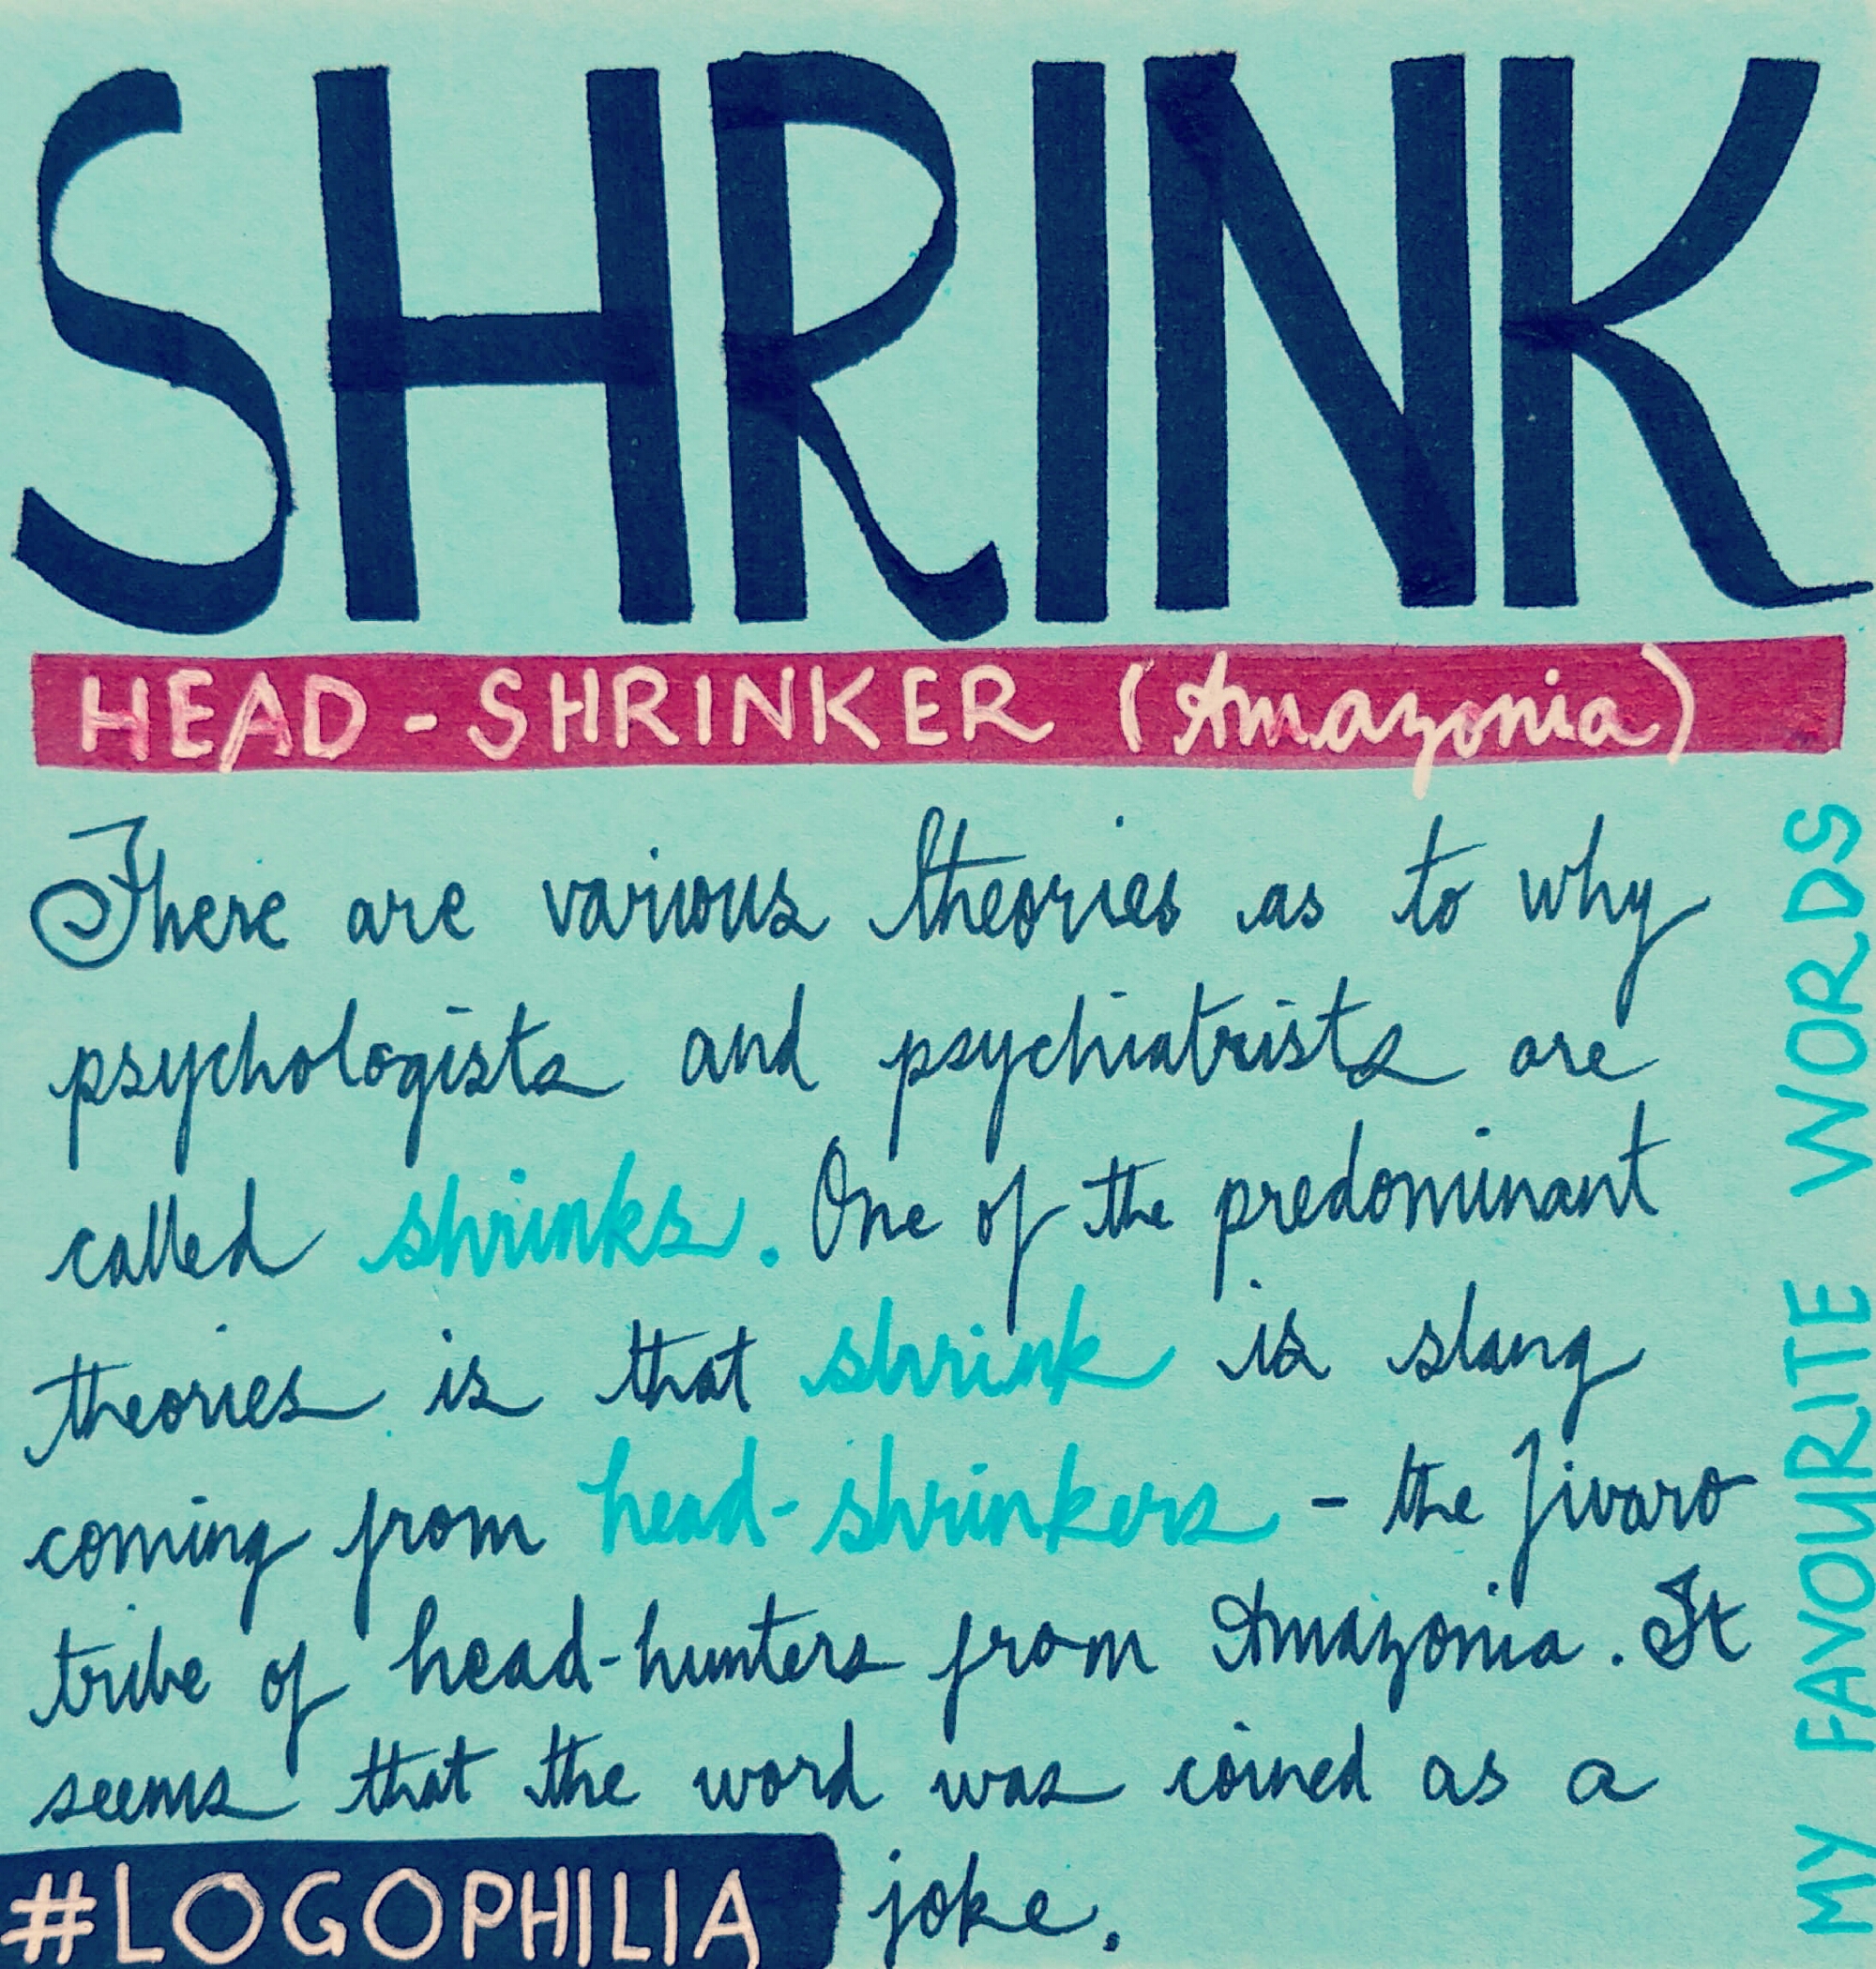 SHRINK
HEAD-SHRINKER (Amazonia)
There are various theories as to why
psychologists and psychiatrists are
called shrinks. One of the predominant
theories is that shrink is slang
coming from head-shrinkers - the Jivaro
tribe of head-hunters from Amazonia. It
seems that the word was coined as a
#LOGOPHILIA joke.
MY FAVOURITE WORDS